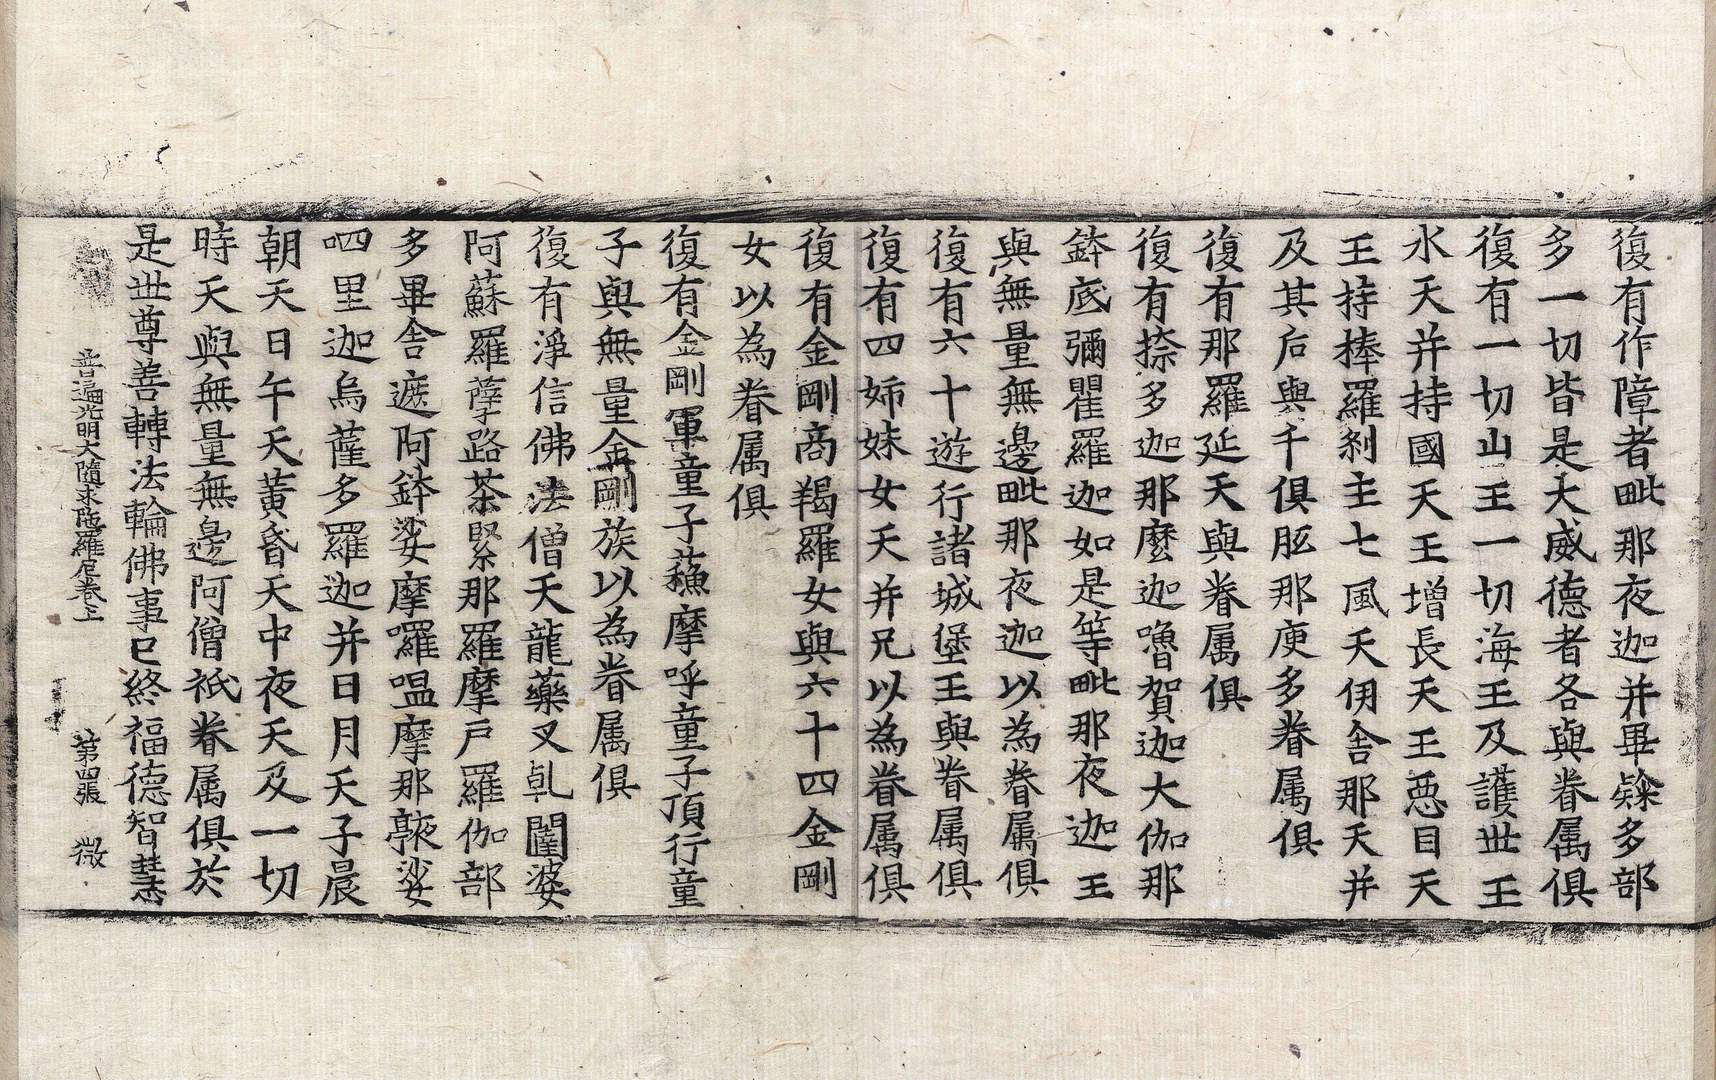 復有作障者毗那夜迦并畢𨇤多部
多一切皆是大威德者各與眷属俱
復有一切山王一切海王及護世王
水天并持國天王增長天王惡目天
王持棒羅剎主七風天伊舍那天并
及其后與千俱胝那庾多眷属俱
復有那羅延天與眷属俱
復有捺多迦那麼迦嚕賀迦大伽那
鉢底彌瞿羅迦如是等毗那夜迦王
與無量無邊毗那夜迦以為眷属俱
復有六十遊行諸城堡王與眷属俱
復有四姊妹女天并兄以為眷属俱
復有金剛商羯羅女與六十四金剛
女以為眷属俱
復有金剛軍童子蘓摩呼童子頂行童
子與無量金剛族以為眷属俱
復有淨信佛法僧天龍藥叉乹闥婆
阿蘇羅孽路荼緊那羅摩戶羅伽部
多畢舍遮阿鉢娑摩囉嗢摩那𠷐娑
呬里迦烏薩多羅迦并日月天子晨
朝天日午天黃昏天中夜天及一切
時天與無量無邊阿僧祇眷属俱於
是世尊善轉法輪佛事已終福德智慧
普遍光明大隨求陁羅尼卷上 第四張 微